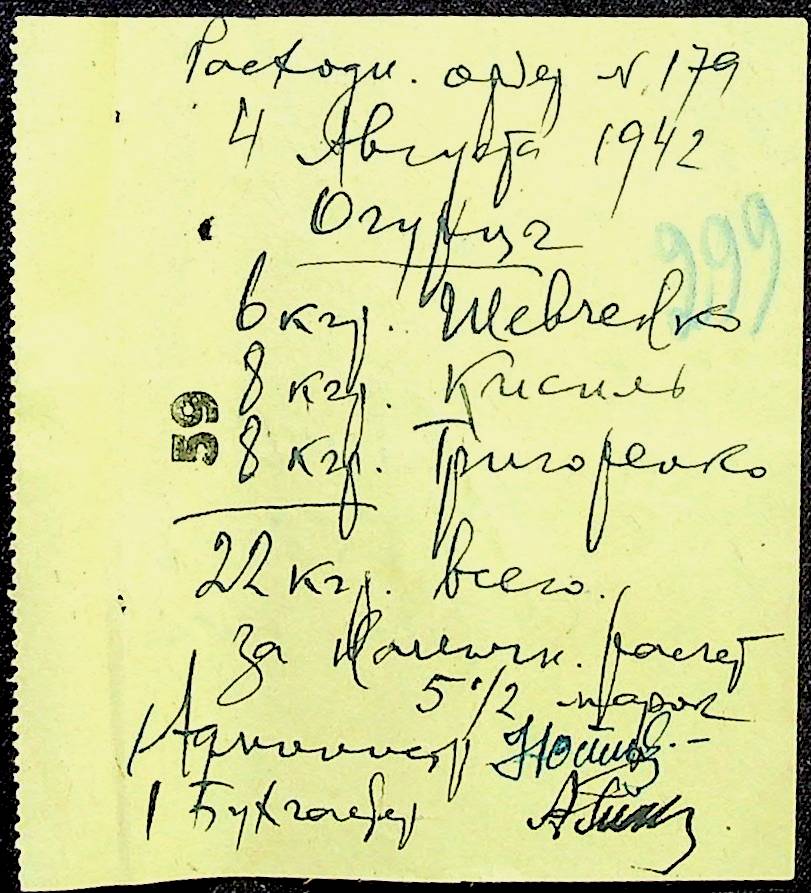 Расходн. орд N 179
4 Августа 1942
Огурцы
299
6 кгр. Шевченко
8 кгр. Кисиль
59
8 кгр. Григоренко
22 кгр. всего.
за наличн. расчет
5 1/2 марок
Администр
Бухгалтер